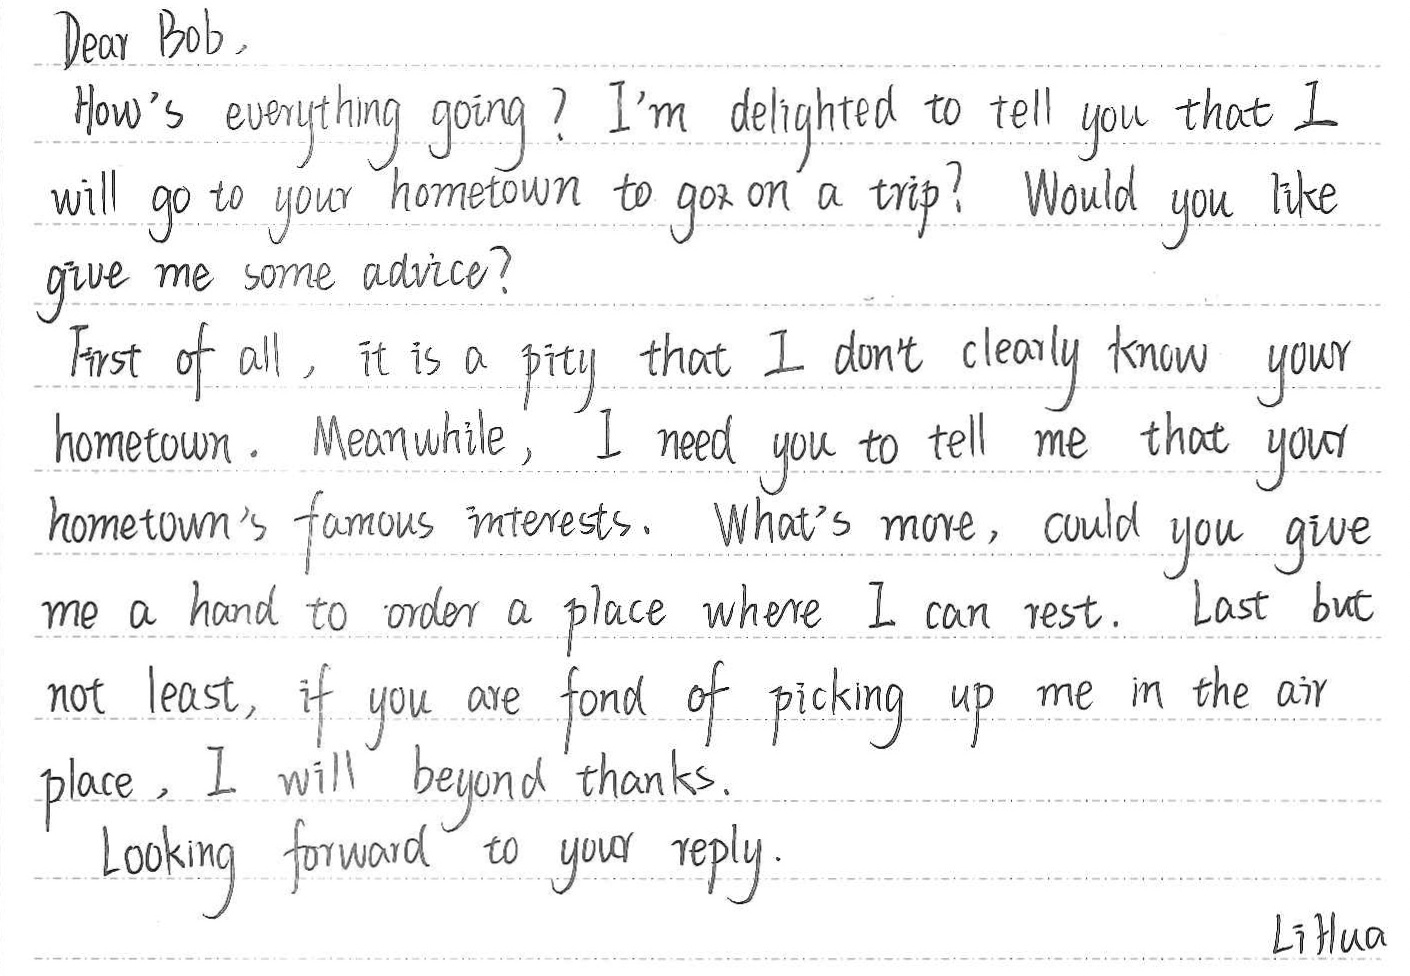 Dear Bob,
How's everything going? I'm delighted to tell you that I
will go to your hometown to go on a trip? Would you like
give me some advice?
First of all, it is a pity that I don't clearly know your
hometown. Meanwhile, I need you to tell me that your
hometown's famous interests. What's more, could you give
me a hand to order a place where I can rest. Last but
not least, if you are fond of picking up me in the air
place, I will beyond thanks.
Looking forward to your reply.
Li Hua